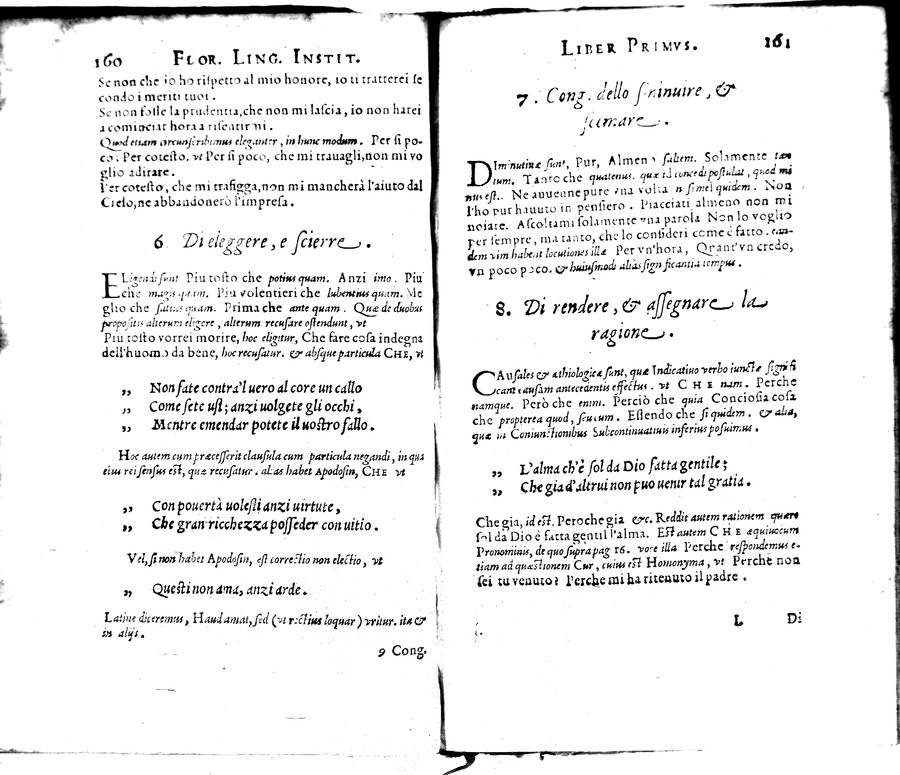 160 FLOR. LING. INSTIT.
Se non che io ho rispetto al mio honore, io ti tratterei se
condo i meriti tuoi.
Se non fosse la prudentia, che non mi lascia, io non harei
a cominciar hora a risentirmi.
Quod etiam circunscribimus eleganter, in hunc modum. Per si po-
co: Per cotesto. vt Per si poco, che mi trauagli, non mi vo
glio adirare.
Per cotesto, che mi trafigga, non mi mancherà l'aiuto dal
Cielo, ne abbandonerò l'impresa.
6 Di eleggere, e scierre.
ELigendi sunt Piu tosto che potius quam. Anzi imo. Piu
che magis quam. Piu volentieri che lubentius quam. Me
glio che satius quam. Prima che ante quam. Quæ de duobus
propositis alterum eligere, alterum recusare ostendunt, vt
Piu tosto vorrei morire, hoc eligitur, Che fare cosa indegna
dell'huomo da bene, hoc recusatur. & absque particula CHE, vt
„ Non fate contra'l uero al core un callo
„ Come sete usi; anzi uolgete gli occhi,
„ Mentre emendar potete il uostro fallo.
Hoc autem cum præcesserit clausula cum particula negandi, in qua
eius rei sensus est, quæ recusatur. alias habet Apodosin, CHE vt
„ Con pouertà uolesti anzi uirtute,
„ Che gran ricchezza posseder con uitio.
Vel, si non habet Apodosin, est correctio non electio, vt
„ Questi non ama, anzi arde.
Latine diceremus, Haud amat, sed (vt rectius loquar) vritur. ita &
in alijs.
9 Cong.
LIBER PRIMVS. 161
7. Cong. dello sminuire, &
scemare.
DIminutiuæ sunt, Pur, Almeno saltem. Solamente tan
tum. Tanto che quatenus. quæ id concedi postulat, quod mi
nus est. Ne auuenne pure vna volta ne semel quidem. Non
l'ho pur hauuto in pensiero. Piacciati almeno non mi
noiare. Ascoltami solamente vna parola Non lo voglio
per sempre, ma tanto, che lo consideri come è fatto. ean-
dem vim habent locutiones illæ Per vn'hora, Quant'vn credo,
vn poco poco. & huiusmodi aliàs significantia tempus.
8. Di rendere, & assegnare la
ragione.
CAusales & æthiologicæ sunt, quæ Indicatiuo verbo iunctæ signifi
cant causam antecedentis effectus. vt CHE nam. Perche
namque. Però che enim. Perciò che quia Conciosia cosa
che propterea quod, seu cum. Essendo che si quidem. & alia,
quæ in Coniunctionibus Subcontinuatiuis inferius posuimus.
„ L'alma ch'è sol da Dio fatta gentile;
„ Che gia d'altrui non puo uenir tal gratia.
Che gia, id est. Peroche gia &c. Reddit autem rationem quare
sol da Dio è fatta gentil l'alma. Est autem CHE æquiuocum
Pronominis, de quo supra pag 16. voce illa Perche respondemus e-
tiam ad quæstionem Cur, cuius est Homonyma, vt Perche non
sei tu venuto? Perche mi ha ritenuto il padre.
L Di